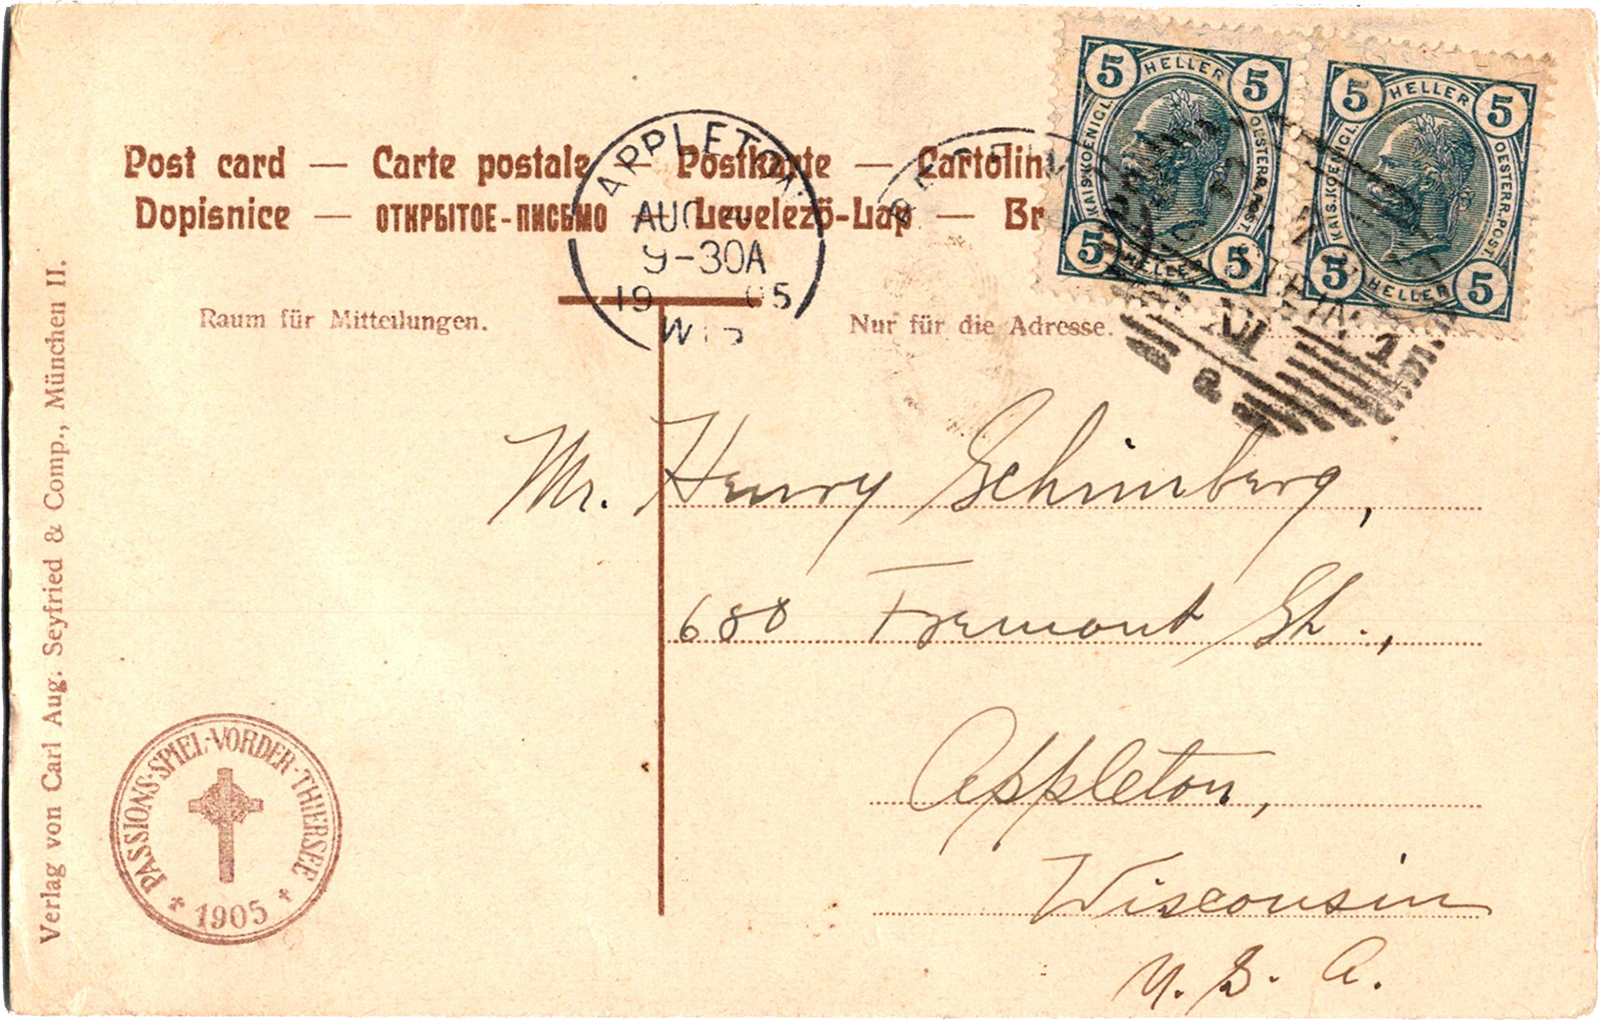 Post card — Carte postale — Postkarte — Cartolin
Dopisnice — ОТКРЫТОЕ-ПИСЬМО — Levelezö-Lap — Br
Raum für Mitteilungen.
Nur für die Adresse.
APPLETON
AUG
9-30A
19 05
WIS
5 HELLER 5
KAIS. KOENIGL. OESTERR. POST.
5 HELLER 5
5 HELLER 5
KAIS. KOENIGL. OESTERR. POST.
5 HELLER 5
Mr. Henry Schimberg,
688 Fremont St.,
Appleton,
Wisconsin
U. S. A.
Verlag von Carl Aug. Seyfried & Comp., München II.
PASSIONS-SPIEL-VORDER-THIERSEE
1905